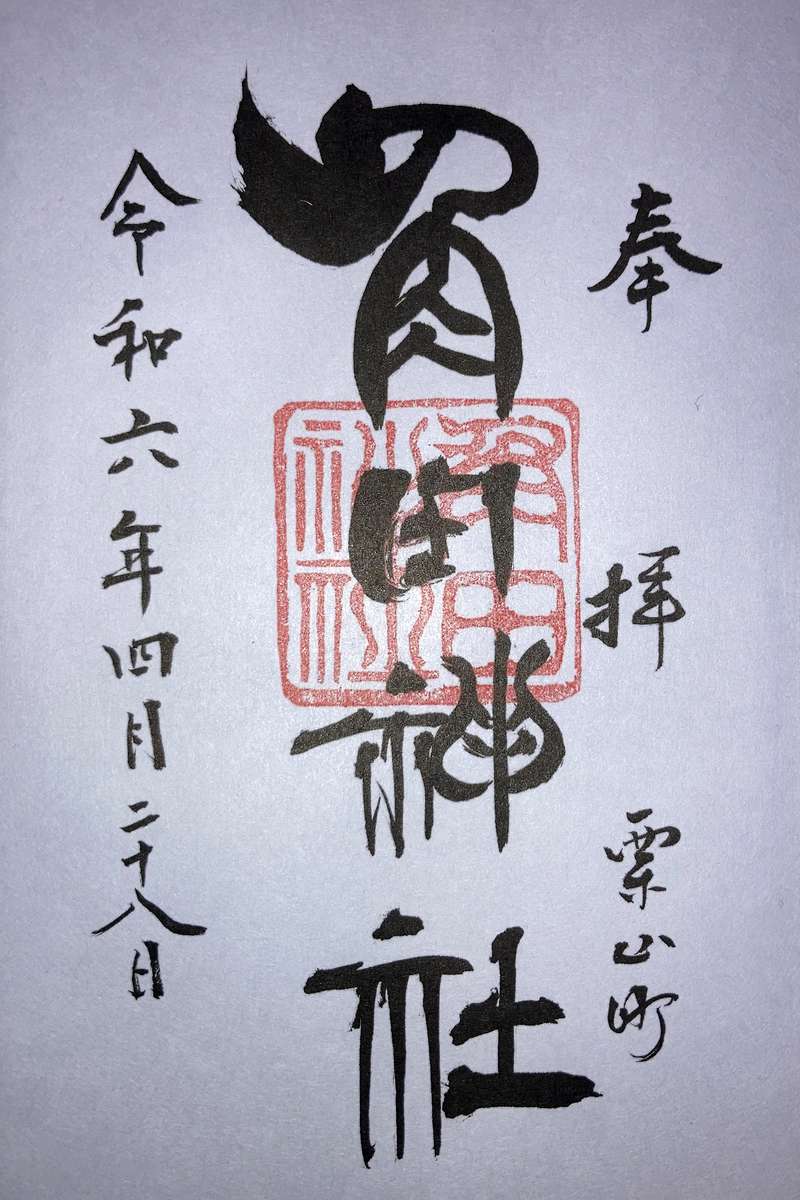 奉拝
栗山町
角田神社
角田
神社
令和六年四月二十八日